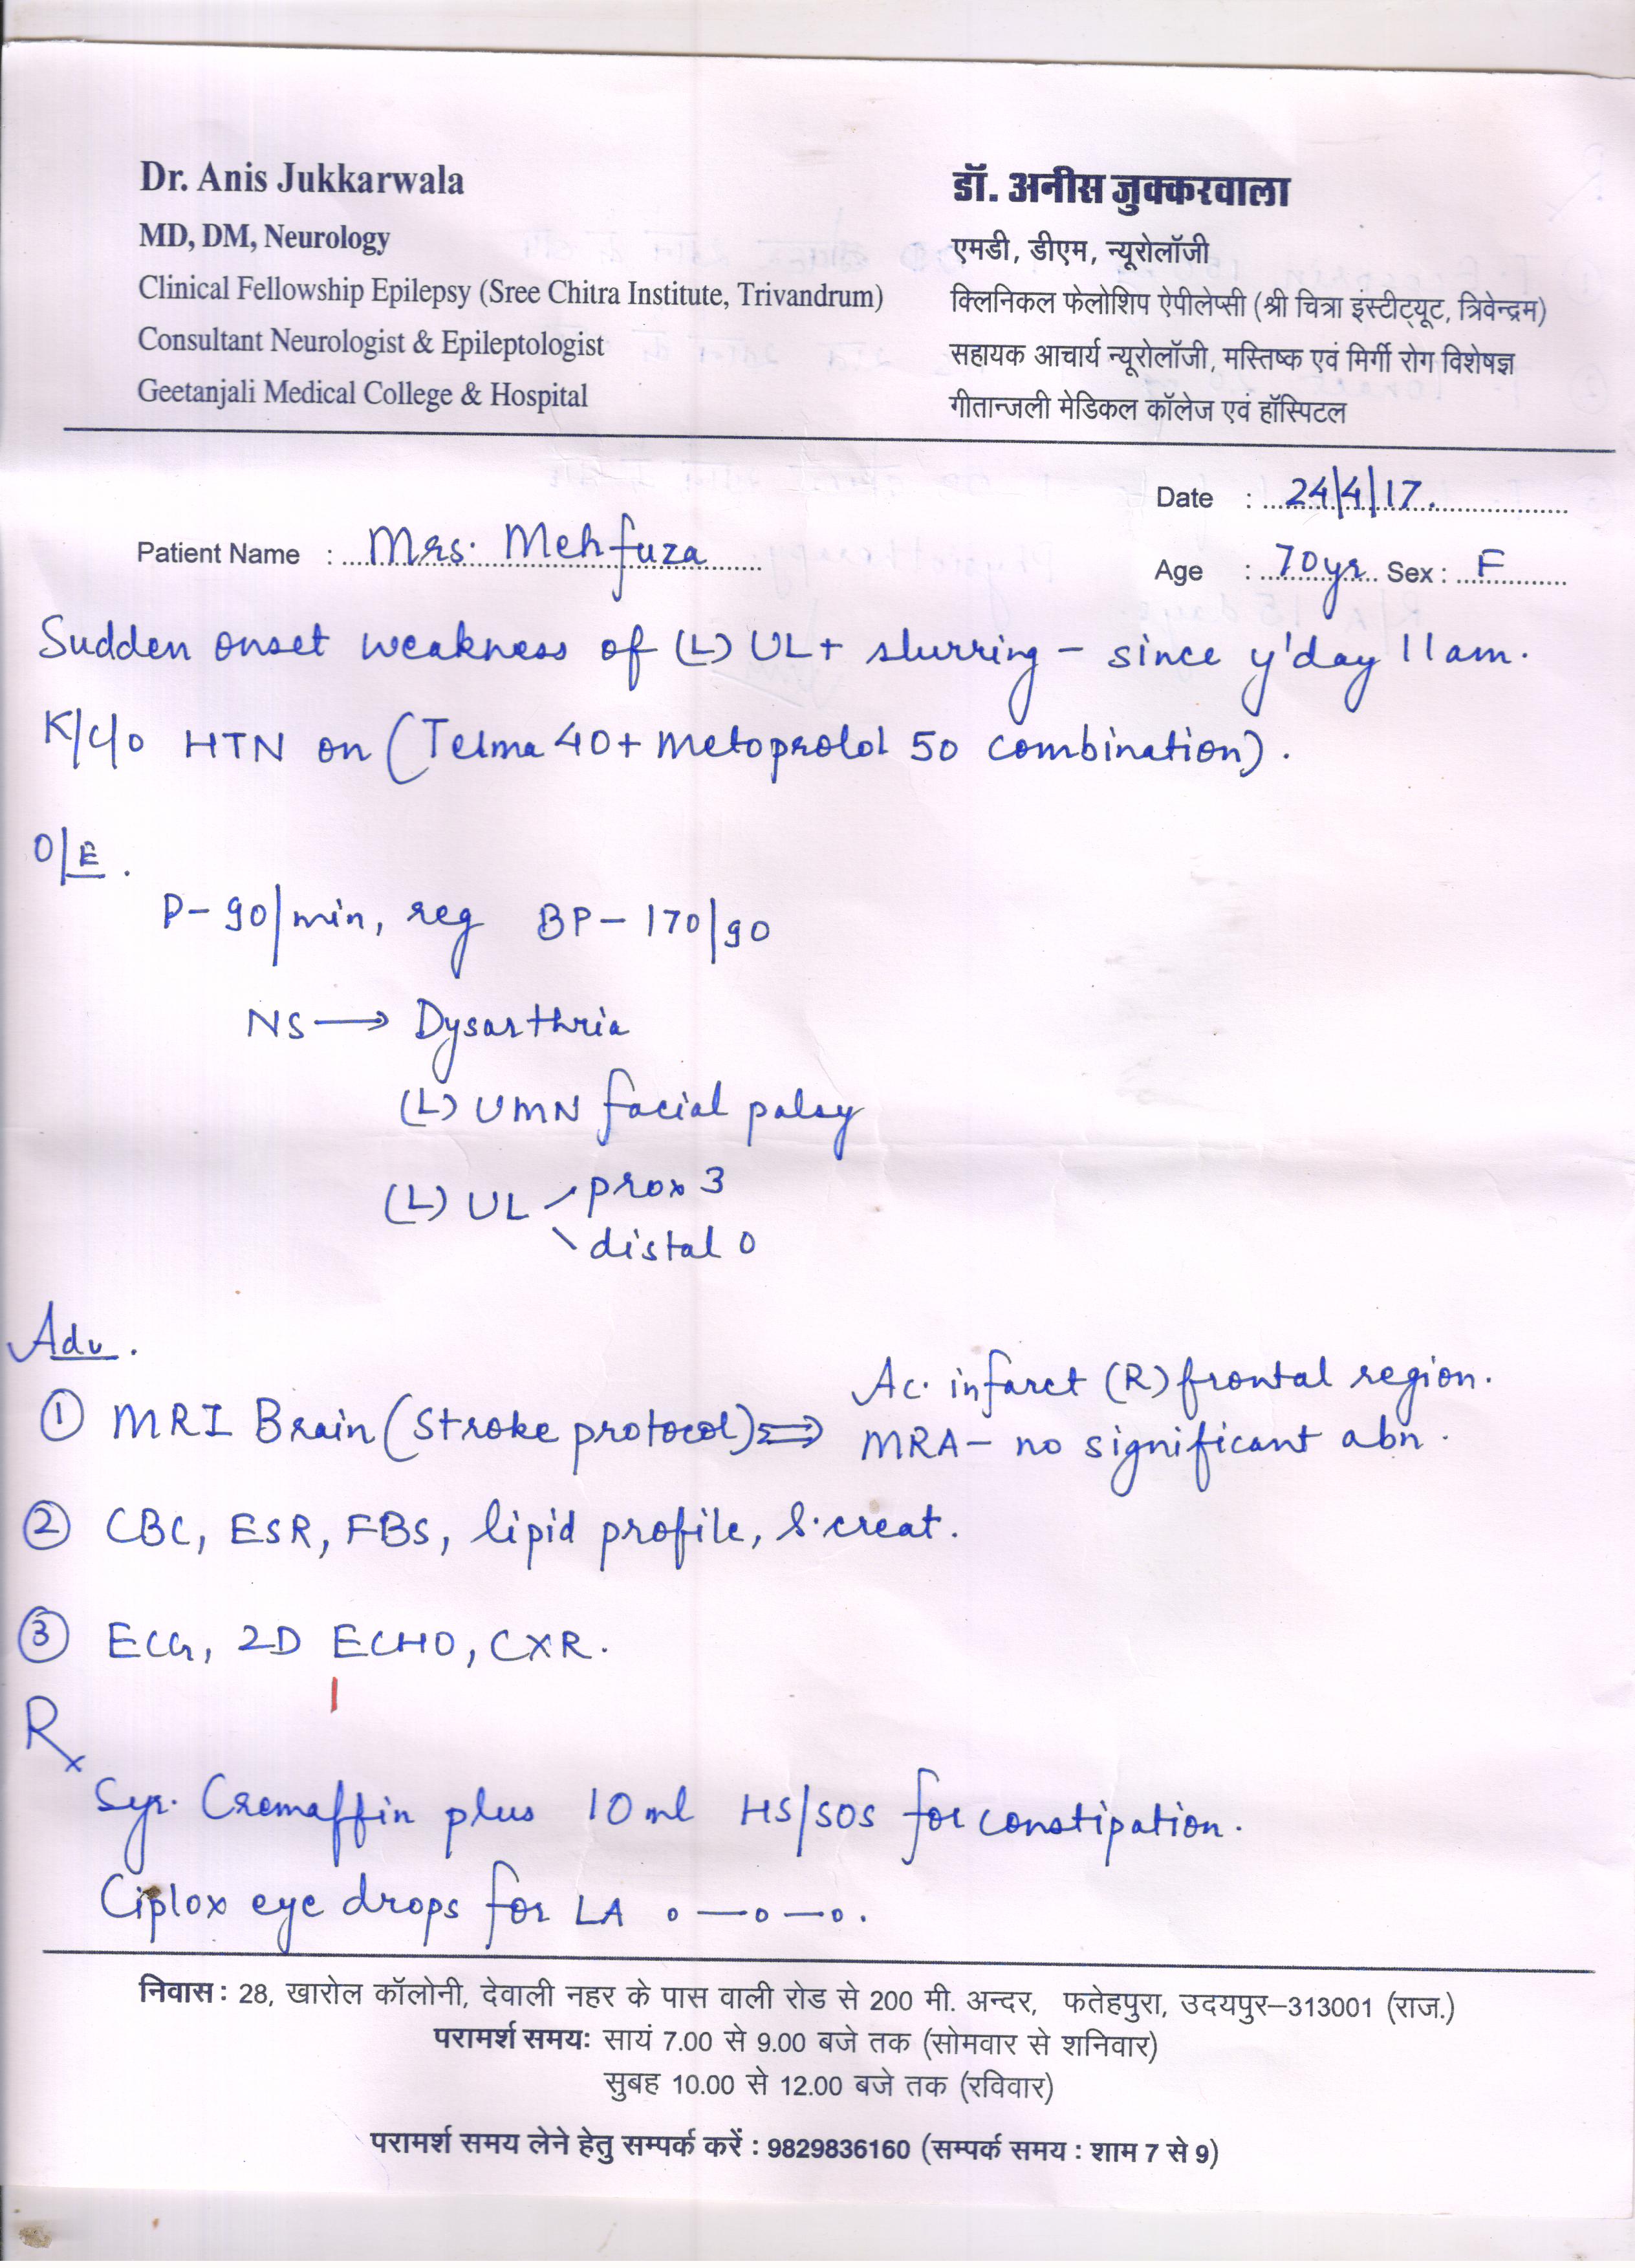 Dr. Anis Jukkarwala
MD, DM, Neurology
Clinical Fellowship Epilepsy (Sree Chitra Institute, Trivandrum)
Consultant Neurologist & Epileptologist
Geetanjali Medical College & Hospital
डॉ. अनीस जुक्करवाला
एमडी, डीएम, न्यूरोलॉजी
क्लिनिकल फेलोशिप ऐपीलेप्सी (श्री चित्रा इंस्टीट्यूट, त्रिवेन्द्रम)
सहायक आचार्य न्यूरोलॉजी, मस्तिष्क एवं मिर्गी रोग विशेषज्ञ
गीतान्जली मेडिकल कॉलेज एवं हॉस्पिटल
Date : 24/4/17.
Patient Name : Mrs. Mehfuza
Age : 70yr Sex : F
Sudden onset weakness of (L) UL + slurring - since y'day 11am.
K/c/o HTN on (Telma 40 + metoprolol 50 combination).
O/E.
P- 90/min, reg BP- 170/90
NS → Dysarthria
(L) UMN facial palsy
(L) UL prox 3
distal 0
Adv.
① MRI Brain (Stroke protocol) ⇒ Ac. infarct (R) frontal region.
MRA- no significant abn.
② CBC, ESR, FBS, lipid profile, S.creat.
③ ECG, 2D ECHO, CXR.
Rx
Syr. Cremaffin plus 10ml HS/SOS for constipation.
Ciplox eye drops for LA o—o—o.
निवास : 28, खारोल कॉलोनी, देवाली नहर के पास वाली रोड से 200 मी. अन्दर, फतेहपुरा, उदयपुर–313001 (राज.)
परामर्श समय: सायं 7.00 से 9.00 बजे तक (सोमवार से शनिवार)
सुबह 10.00 से 12.00 बजे तक (रविवार)
परामर्श समय लेने हेतु सम्पर्क करें : 9829836160 (सम्पर्क समय : शाम 7 से 9)